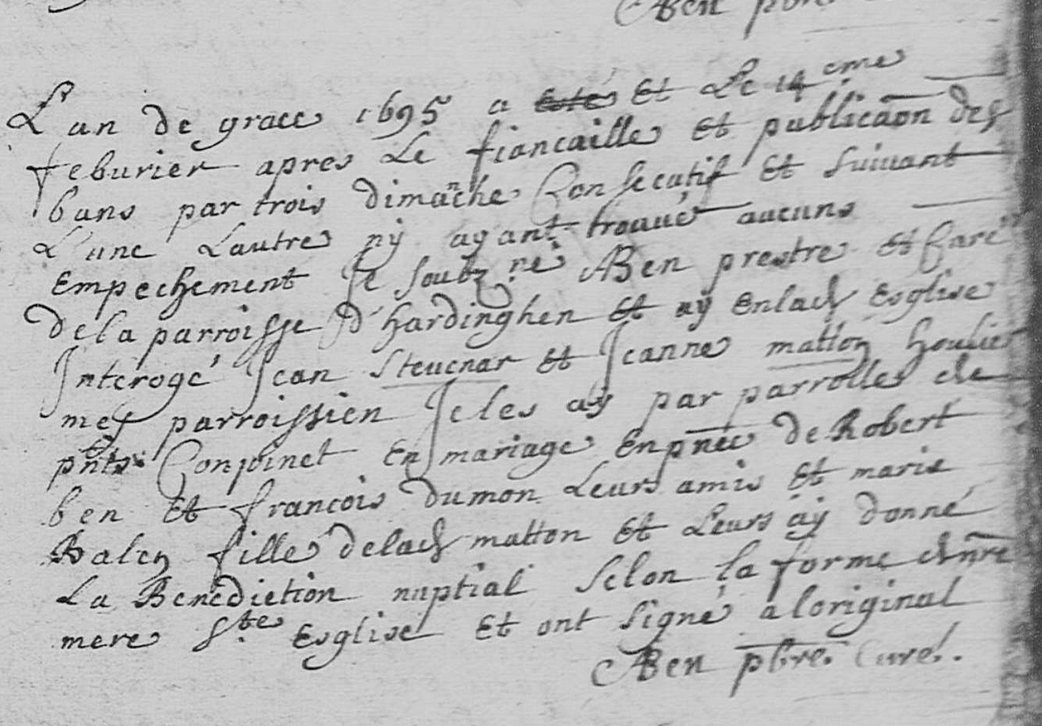 Ben pbre
L'an de grace 1695 a esté et Le 14 eme
feburier apres Le fiancaille et publicaon des
bans par trois dimanche Consecutif et suivant
L'une Lautre ny ayant trouué aucuns
Empechement Je soubz né ABen prestre et Curé
de la parroisse d'hardinghen et ay en lad Esglise
Interogé Jean Steuenar et Jeanne matton
mes parroissien Je les ay par parrolles de
pnts Conjoinct en mariage en pnce de Robert
ben et francois dumon Leurs amis et marie
Balen fille de lad matton et Leurs ay donné
La Benediction nuptial selon la forme de nre
mere Ste Esglise et ont signé a loriginal
ABen pbre Curé.